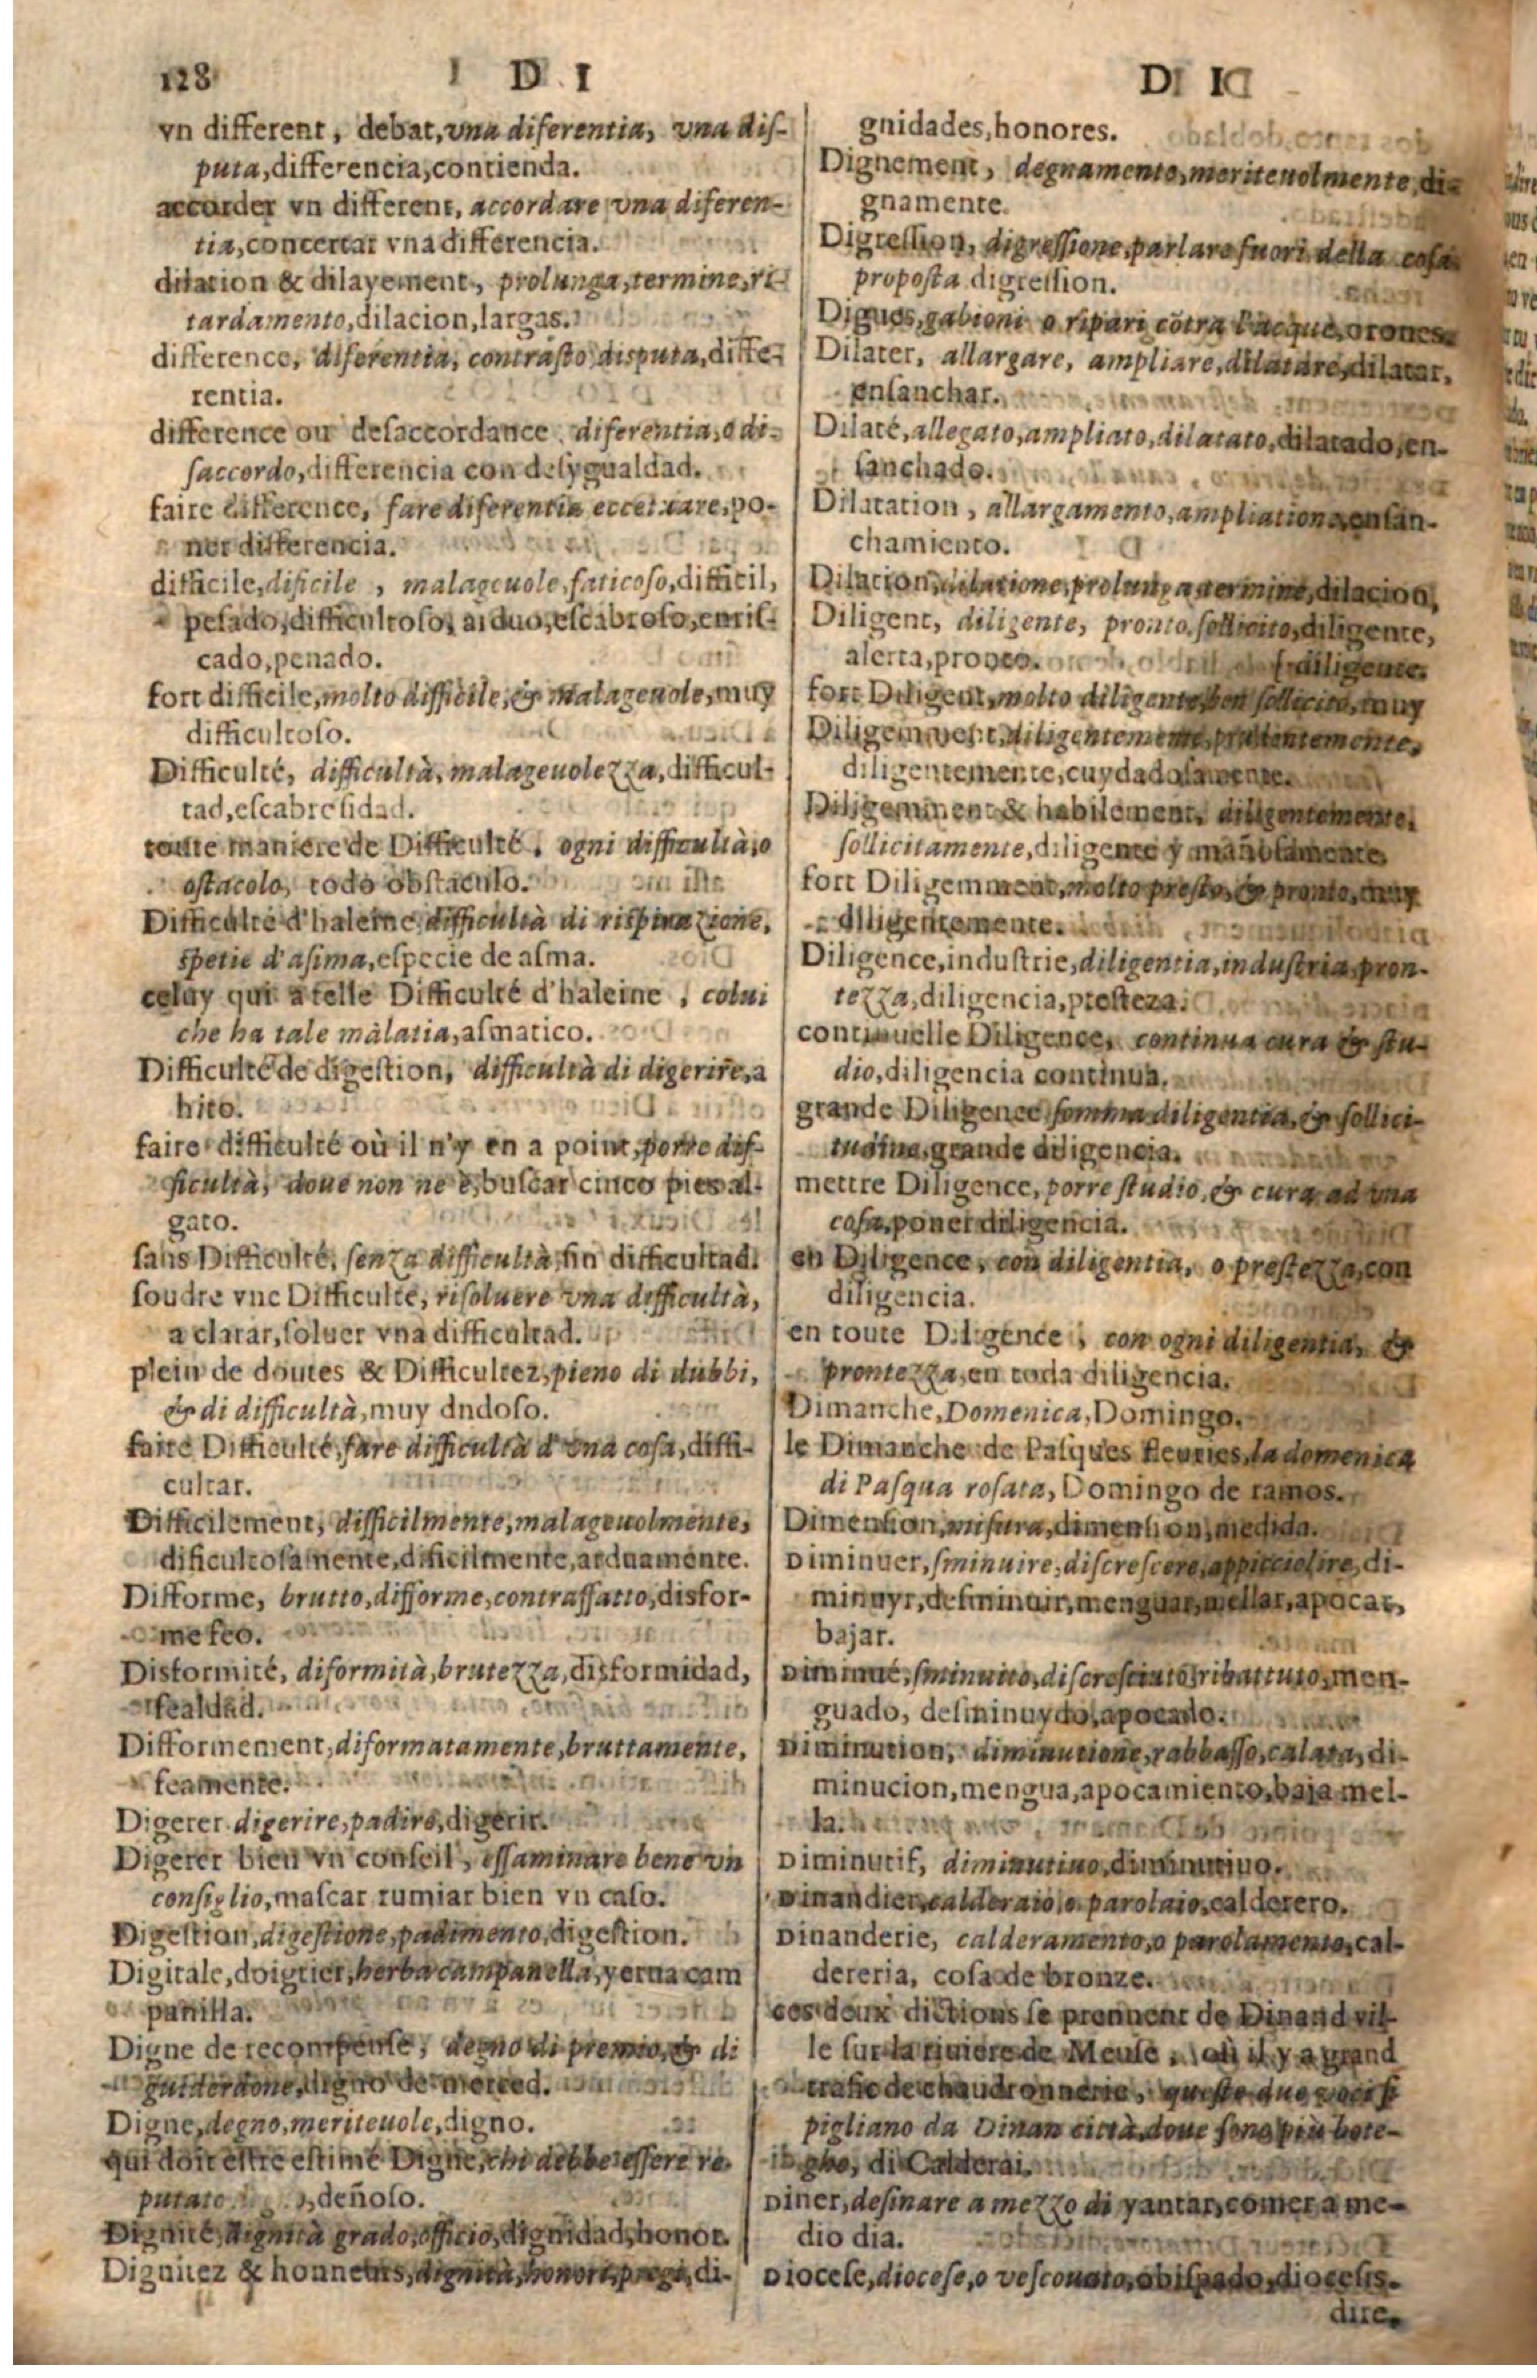 128 D I
vn different, debat, vna diferentia, vna dis-
puta, differencia, contienda.
accorder vn different, accordare vna diferen-
tia, concertar vna differencia.
dilation & dilayement, prolunga, termine, ri-
tardamento, dilacion, largas.
difference, diferentia, contrasto disputa, diffe-
rentia.
difference ou desaccordance, diferentia, o di-
saccordo, differencia con desygualdad.
faire difference, fare diferentia, po-
ner differencia.
difficile, dificile, malageuole, faticoso, difficil,
pesado, difficultoso, arduo, escabroso, enris-
cado, penado.
fort difficile, molto difficile, & malageuole, muy
difficultoso.
Difficulté, difficultà, malageuolezza, difficul-
tad, escabrosidad.
toute maniere de Difficulté, ogni difficultà, o
ostacolo, todo obstaculo.
Difficulté d'haleine, difficultà di rispirazione,
spetie d'asima, especie de asma.
celuy qui a telle Difficulté d'haleine, colui
che ha tale màlatia, asmatico.
Difficulté de digestion, difficultà di digerire, a
hito.
faire difficulté où il n'y en a point, porre dif-
ficultà, doue non ne è, buscar cinco pies al
gato.
sans Difficulté, senza difficultà, sin difficultad.
soudre vne Difficulté, risoluere vna difficultà,
a clarar, soluer vna difficultad.
plein de doutes & Difficultez, pieno di dubbi,
& di difficultà, muy dndoso.
faire Difficulté, fare difficultà d'vna cosa, diffi-
cultar.
Difficilement, difficilmente, malageuolmente,
dificultosamente, dificilmente, arduamente.
Difforme, brutto, difforme, contraffatto, disfor-
me feo.
Disformité, diformità, brutezza, disformidad,
fealdad.
Difformement, diformatamente, bruttamente,
feamente.
Digerer digerire, padire, digerir.
Digerer bien vn conseil, essaminare bene vn
consiglio, mascar rumiar bien vn caso.
Digestion, digestione, padimento, digestion.
Digitale, doigtier, herba campanella, yerua cam
panilla.
Digne de recompense, degno di premio, & di
guiderdone, digno de merced.
Digne, degno, meriteuole, digno.
qui doit estre estimé Digne, chi debbe essere re
putato, deñoso.
Dignité, dignità grado, officio, dignidad, honor.
Dignitez & honneurs, dignità, honori, pregi, di-
D I
gnidades, honores.
Dignement, degnamente, meriteuolmente, di-
gnamente.
Digression, digressione, parlare fuori della cosa
proposta digression.
Digues, gabioni o ripari cōtra l'acque,
Dilater, allargare, ampliare, dilatare, dilatar,
ensanchar.
Dilaté, allegato, ampliato, dilatato, dilatado, en-
sanchado.
Dilatation, allargamento, ampliatione, ensan-
chamiento.
Dilation, dilatione, prolunga termine, dilacion,
Diligent, diligente, pronto, sollicito, diligente,
alerta, pronto. [diligente.
fort Diligent, molto diligente, ben sollicito, muy
Diligemment, diligentemente,
diligentemente, cuydadosamente.
Diligemment & habilement, diligentemente,
sollicitamente, diligente y mañosamente.
fort Diligemment, molto presto, & pronto, muy
diligentemente.
Diligence, industrie, diligentia, industria, pron-
tezza, diligencia, presteza.
continuelle Diligence, continua cura & stu-
dio, diligencia continua.
grande Diligence somma diligentia, & sollici-
tudine, grande diligencia.
mettre Diligence, porre studio, & cura ad vna
cosa, poner diligencia.
en Diligence, con diligentia, o prestezza, con
diligencia.
en toute Diligence, con ogni diligentia, &
prontezza, en toda diligencia.
Dimanche, Domenica, Domingo.
le Dimanche de Pasques fleuries, la domenica
di Pasqua rosata, Domingo de ramos.
Dimension, misura, dimension, medida.
Diminuer, sminuire, discrescere, appicciolire, di-
minuyr, desminuir, menguar, mellar, apocar,
bajar.
Diminué, sminuito, discresciuto, ribattuto, men-
guado, desminuydo, apocado.
Diminution, diminutione, rabbasso, calata, di-
minucion, mengua, apocamiento, baja mel-
la.
Diminutif, diminutiuo, diminutiuo.
Dinandier, calderaio, o parolaio, calderero.
Dinanderie, calderamento, o parolamento, cal-
dereria, cosa de bronze.
ces deux dictions se prennent de Dinand vil-
le sur la riuiere de Meuse, où il y a grand
trafic de chaudronnerie, queste due voci si
pigliano da Dinan città, doue sono più bote-
ghe, di Calderai.
Diner, desinare a mezzo di yantar, comer a me-
dio dia.
Diocese, diocese, o vescouato, obispado, diocesis.
dire,